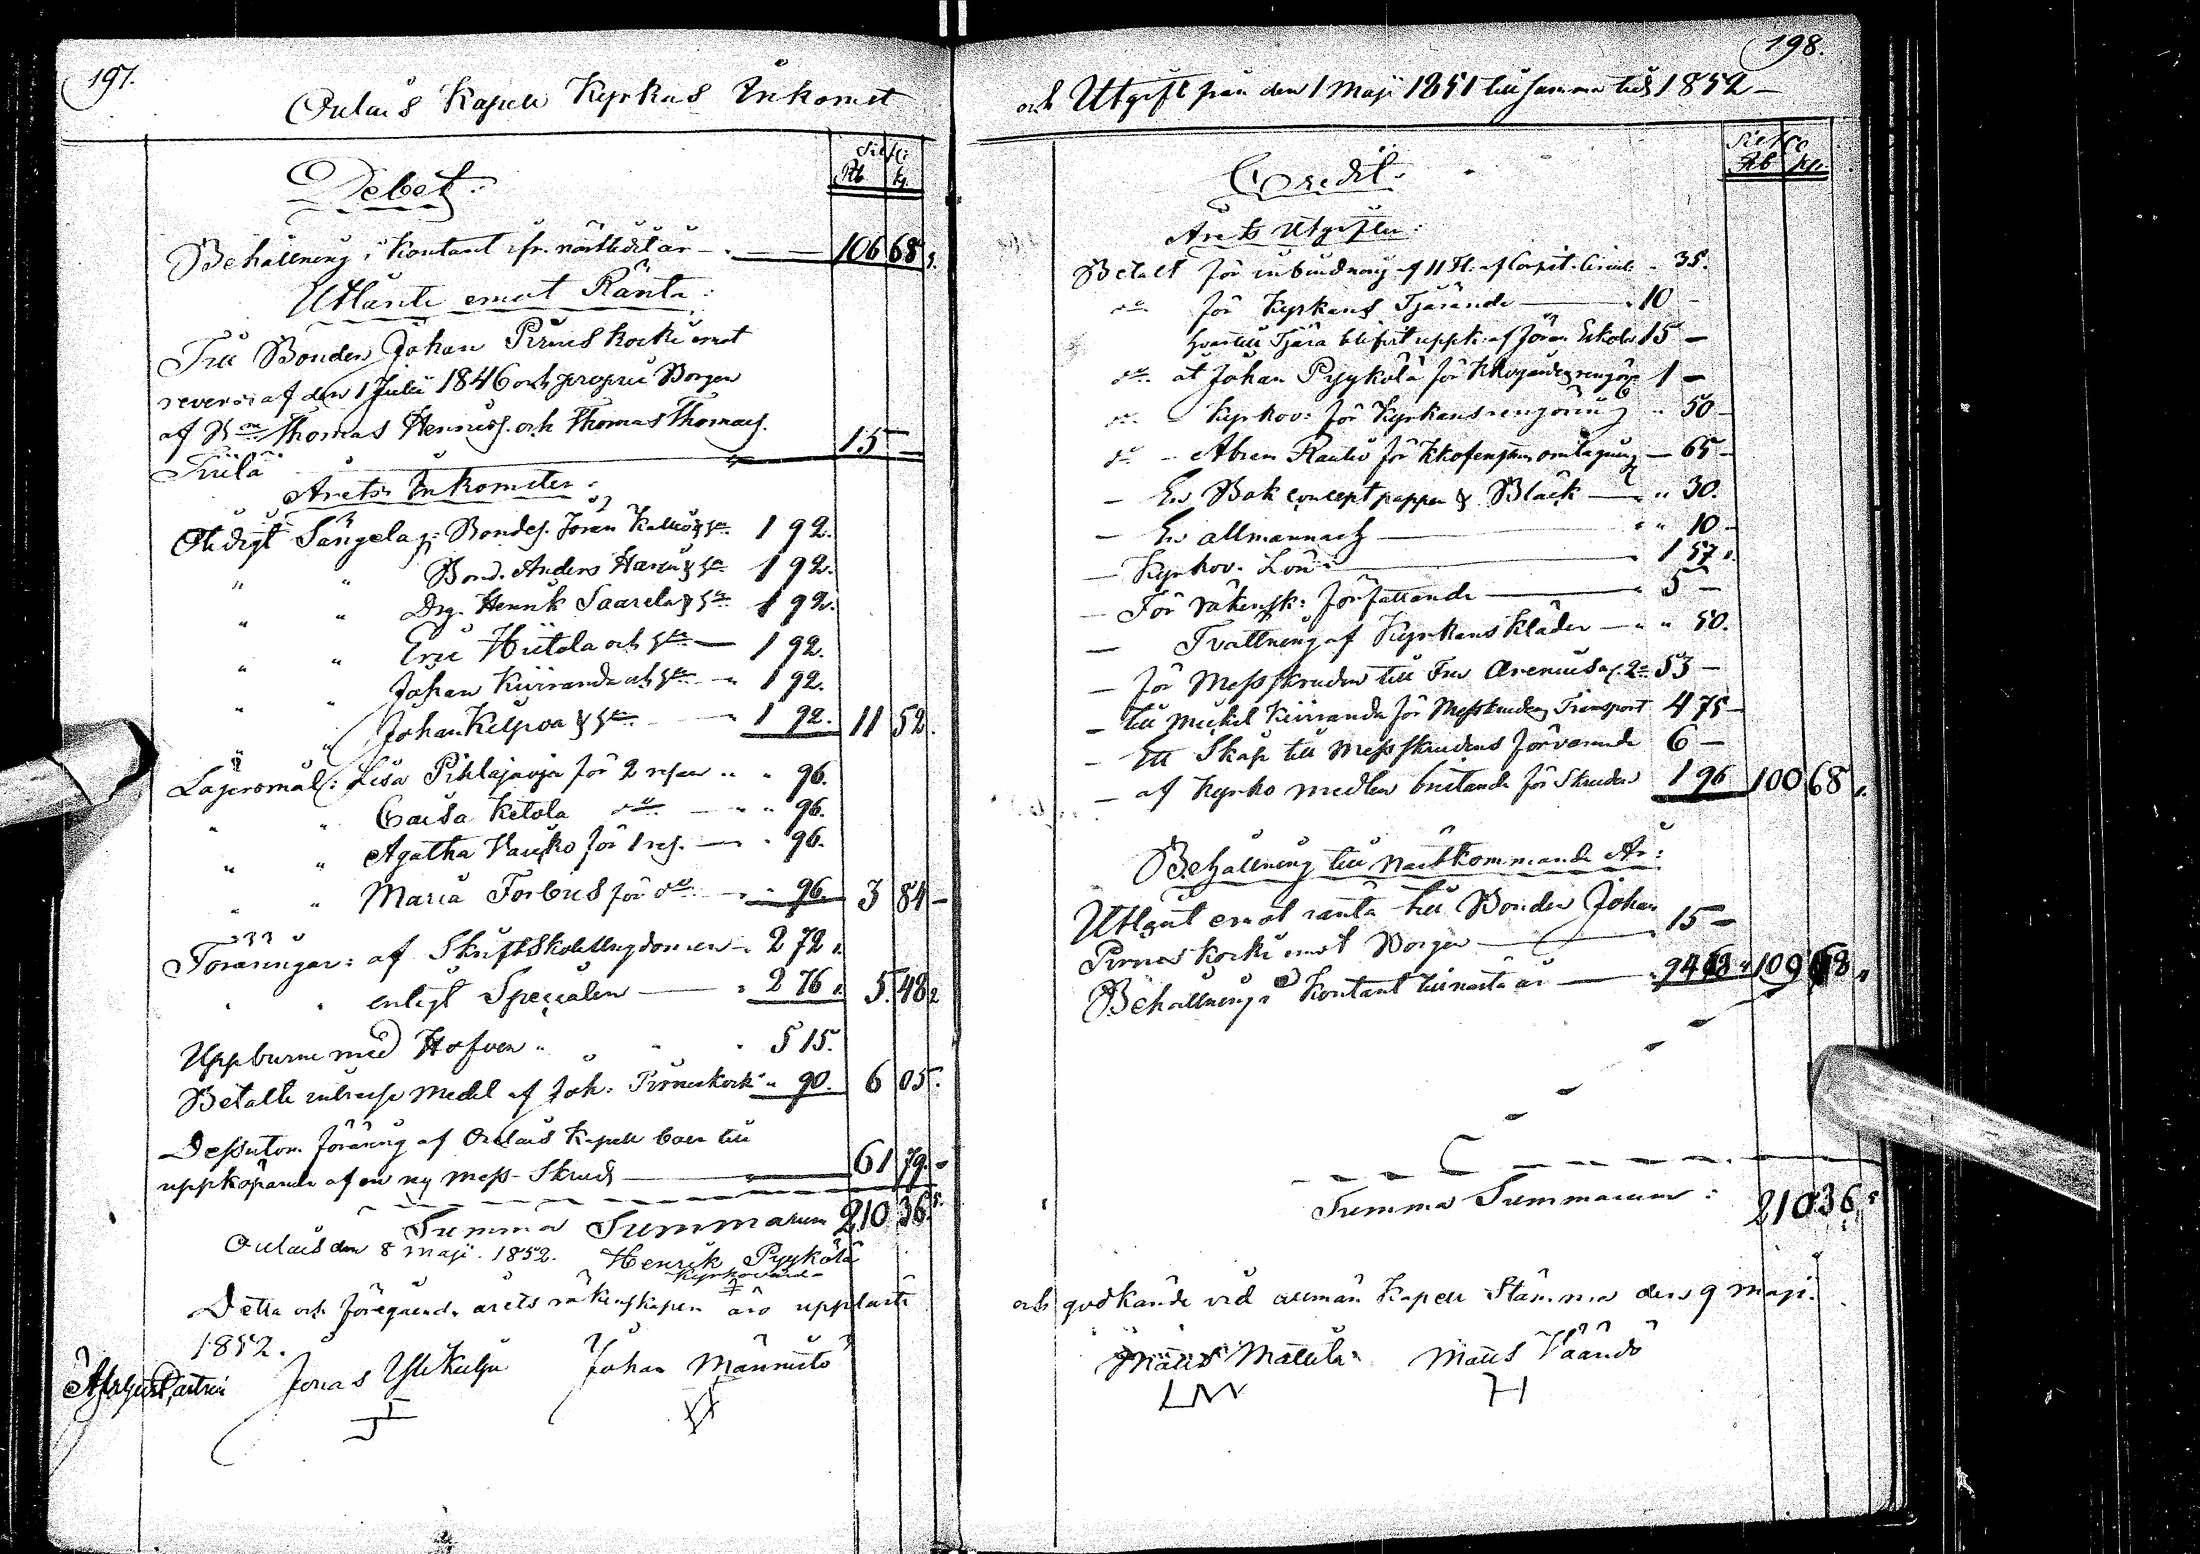 197.
Oulais Kapell Kyrkas Inkomst
Debet.
Silfv:
Rb k.
Behållning i Kontant ifr. näst ledit år — 106 68
Utlånte emot Ränta:
Till Bonden Johan Pirneskoski emot
revers af den 1 Julii 1846 och proprie Borgen
af Nm Thomas Henriks. och Thomas Thomas.
15 —
Årets Inkomster:
Otidigt Sängelag: Bondes. Jöran & 1 92.
" " Bond. Anders & 1 92.
" " Drg. Henrik Saarela & 1 92.
" " Eric Hiitola och — 1 92.
" " Johan Kiviranda och — 1 92.
" " Johan Kelpoa & — 1 92. 11 52.
Lägersmål: Lisa Pihlajaoja för 2 resan " " 96.
" " Caisa Ketola do — " " 96.
" " Agatha för 1 res. — " 96.
" " Maria Forbus för do — " 96. 3 84 —
Föräringar: af Skriftskole Ungdomen " 2 72
" " enligt Specialen — " 2 76 5. 48
Uppburne med Hofven " " " 5 15.
Betalte intresse Medel af Joh: Pirneskoski " 90. 6 05.
Dessutom föräring af Oulais Kapell boer till
uppköpande af en ny Mess-Skrud — 61 79. —
Summa Summarum 210 36.
Oulais den 8 Maji. 1852. Henrik Pyykölä
Kyrkovärd
Detta och föregående årets räkenskaper äro uppläste
1852.
Jonas Johan Männistö
198.
och Utgift från den 1 Maji 1851 till samma tid 1852 —
Credit.
Rb kp.
Årets Utgifter:
Betalt för inbindning af 11 " 35.
do för Kyrkans Tjärande — " 10 —
hvartill Tjära blifvit uppk: af Jöran 15 —
do åt Johan Pyykölä för 1 —
do Kyrkov: för Kyrkans rengöring " 50 —
do — Abram Rautio för omlagning — 65 —
— En Bok concept papper & Bläck — " 30.
— En allmannach — " " 10 —
— Kyrkov. Lön — " 1 57
— För räkensk: författande — " 5 —
— Tvättning af Kyrkans Kläder — " " 50.
— för Messskruden till Fru 53 —
— till Mickel Kiviranda för Messskrudens Transport 4 75 —
— Ett Skåp till Messskrudens förvarande 6 —
— af Kyrko medlen bristande för Skruden 1 96 100 68
Behållning till nästkommande År:
Utlånt emot ränta till Bonden Johan
Pirneskoski emot Borgen — 15 —
Behållning i Kontant till nästa år — 94 68 109 68
Summa Summarum: 210 36
och godkände vid allmän Kapell Stämma den 9 Maji.
Matts Mattila Matts Väändö
LM H